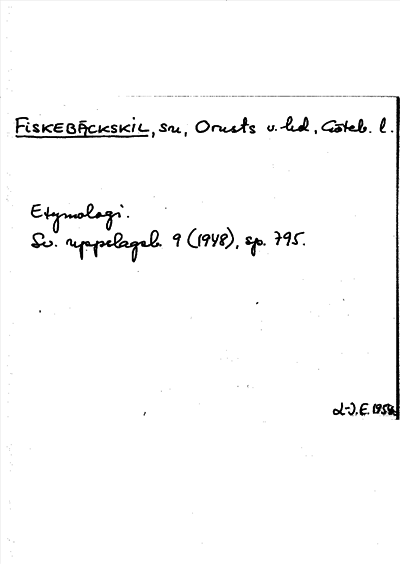 FISKEBÄCKSKIL, sn, Orusts v. hd, Göteb. l.
Etymologi.
Sv. uppslagsb. 9 (1948), sp. 795.
L-J.E. 1958.